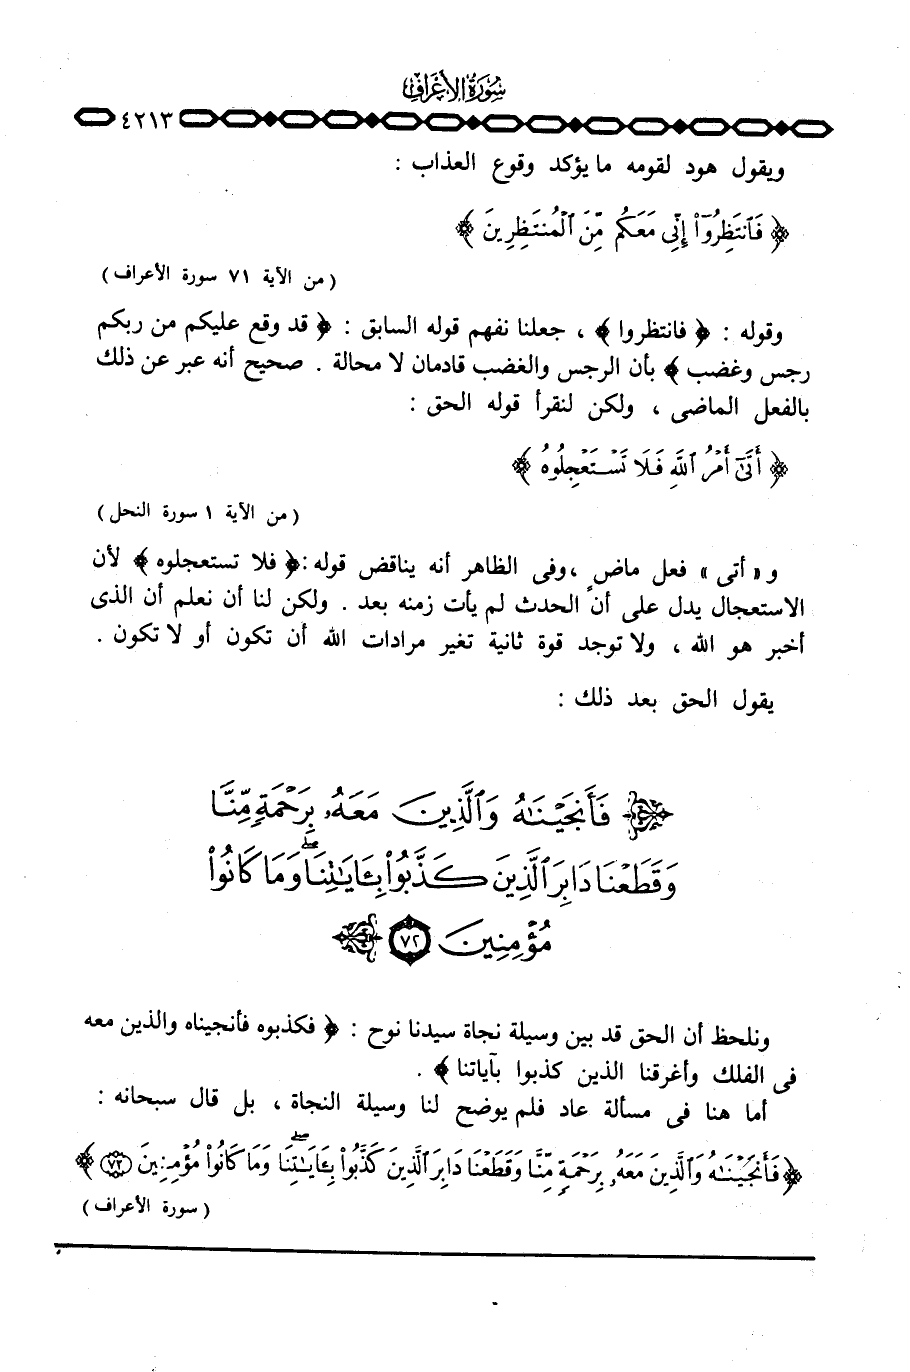 سُورَةُ الأَعْرَافِ
٤٢١٣
ويقول هود لقومه ما يؤكد وقوع العذاب :
﴿ فَٱنتَظِرُوٓا۟ إِنِّى مَعَكُم مِّنَ ٱلْمُنتَظِرِينَ ﴾
( من الآية ٧١ سورة الأعراف )
وقوله : ﴿ فانتظروا ﴾ ، جعلنا نفهم قوله السابق : ﴿ قد وقع عليكم من ربكم
رجس وغضب ﴾ بأن الرجس والغضب قادمان لا محالة . صحيح أنه عبر عن ذلك
بالفعل الماضى ، ولكن لنقرأ قوله الحق :
﴿ أَتَىٰٓ أَمْرُ ٱللَّهِ فَلَا تَسْتَعْجِلُوهُ ﴾
( من الآية ١ سورة النحل )
و « أتى » فعل ماضٍ ، وفى الظاهر أنه يناقض قوله : ﴿ فلا تستعجلوه ﴾ لأن
الاستعجال يدل على أن الحدث لم يأت زمنه بعد . ولكن لنا أن نعلم أن الذى
أخبر هو الله ، ولا توجد قوة ثانية تغير مرادات الله أن تكون أو لا تكون .
يقول الحق بعد ذلك :
﴿ فَأَنجَيْنَـٰهُ وَٱلَّذِينَ مَعَهُۥ بِرَحْمَةٍ مِّنَّا
وَقَطَعْنَا دَابِرَ ٱلَّذِينَ كَذَّبُوا۟ بِـَٔايَـٰتِنَا ۖ وَمَا كَانُوا۟
مُؤْمِنِينَ ٧٢ ﴾
ونلحظ أن الحق قد بين وسيلة نجاة سيدنا نوح : ﴿ فكذبوه فأنجيناه والذين معه
فى الفلك وأغرقنا الذين كذبوا بآياتنا ﴾ .
أما هنا فى مسألة عاد فلم يوضح لنا وسيلة النجاة ، بل قال سبحانه :
﴿ فَأَنجَيْنَـٰهُ وَٱلَّذِينَ مَعَهُۥ بِرَحْمَةٍ مِّنَّا وَقَطَعْنَا دَابِرَ ٱلَّذِينَ كَذَّبُوا۟ بِـَٔايَـٰتِنَا ۖ وَمَا كَانُوا۟ مُؤْمِنِينَ ٧٢ ﴾
( سورة الأعراف )